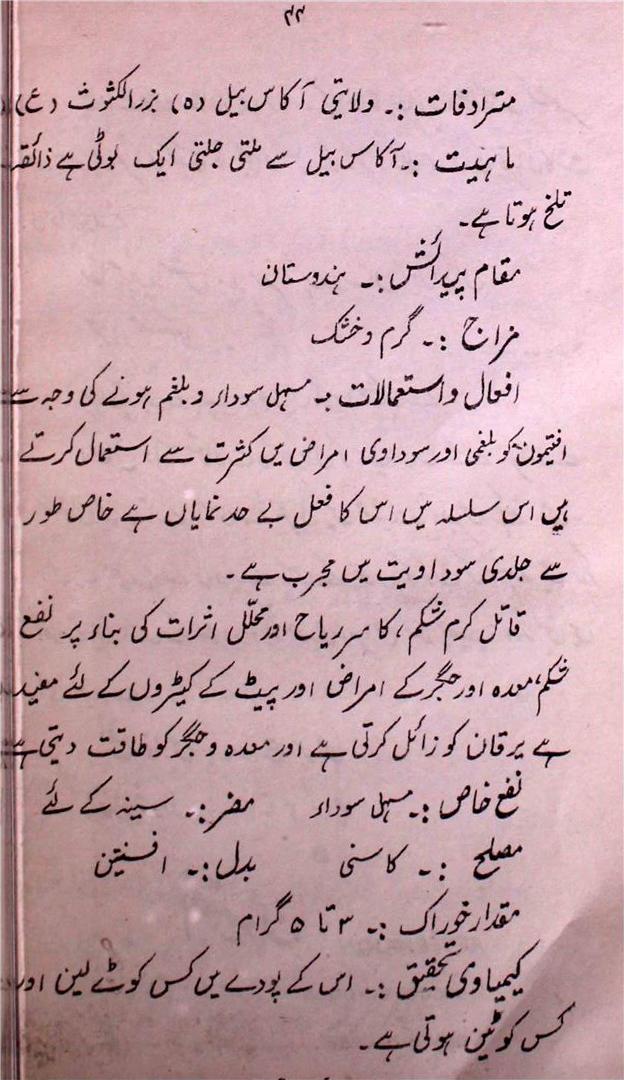 ۴۴
مترادفات :۔ ولایتی آکاس بیل (ہ) بزرالکثوث (ع)
ماہیت :۔ آکاس بیل سے ملتی جلتی ایک بوٹی ہے ذائقہ
تلخ ہوتا ہے۔
مقام پیدائش :۔ ہندوستان
مزاج :۔ گرم و خشک
افعال و استعمالات :۔ مسہل سوداء و بلغم ہونے کی وجہ سے
افتیمون کو بلغمی اور سوداوی امراض میں کثرت سے استعمال کرتے
ہیں اس سلسلہ میں اس کا فعل بے حد نمایاں ہے خاص طور
سے جلدی سوداویت میں مجرب ہے۔
قاتل کرم شکم، کاسر ریاح اور محلّل اثرات کی بناء پر نفع
شکم، معدہ اور جگر کے امراض اور پیٹ کے کیڑوں کے لئے مفید
ہے یرقان کو زائل کرتی ہے اور معدہ و جگر کو طاقت دیتی ہے
نفع خاص :۔ مسہل سوداء مضر :۔ سینہ کے لئے
مصلح :۔ کاسنی بدل :۔ افسنتین
مقدار خوراک :۔ ۳ تا ۵ گرام
کیمیاوی تحقیق :۔ اس کے پودے میں کس کوٹے لین اور
کس کوٹین ہوتی ہے۔